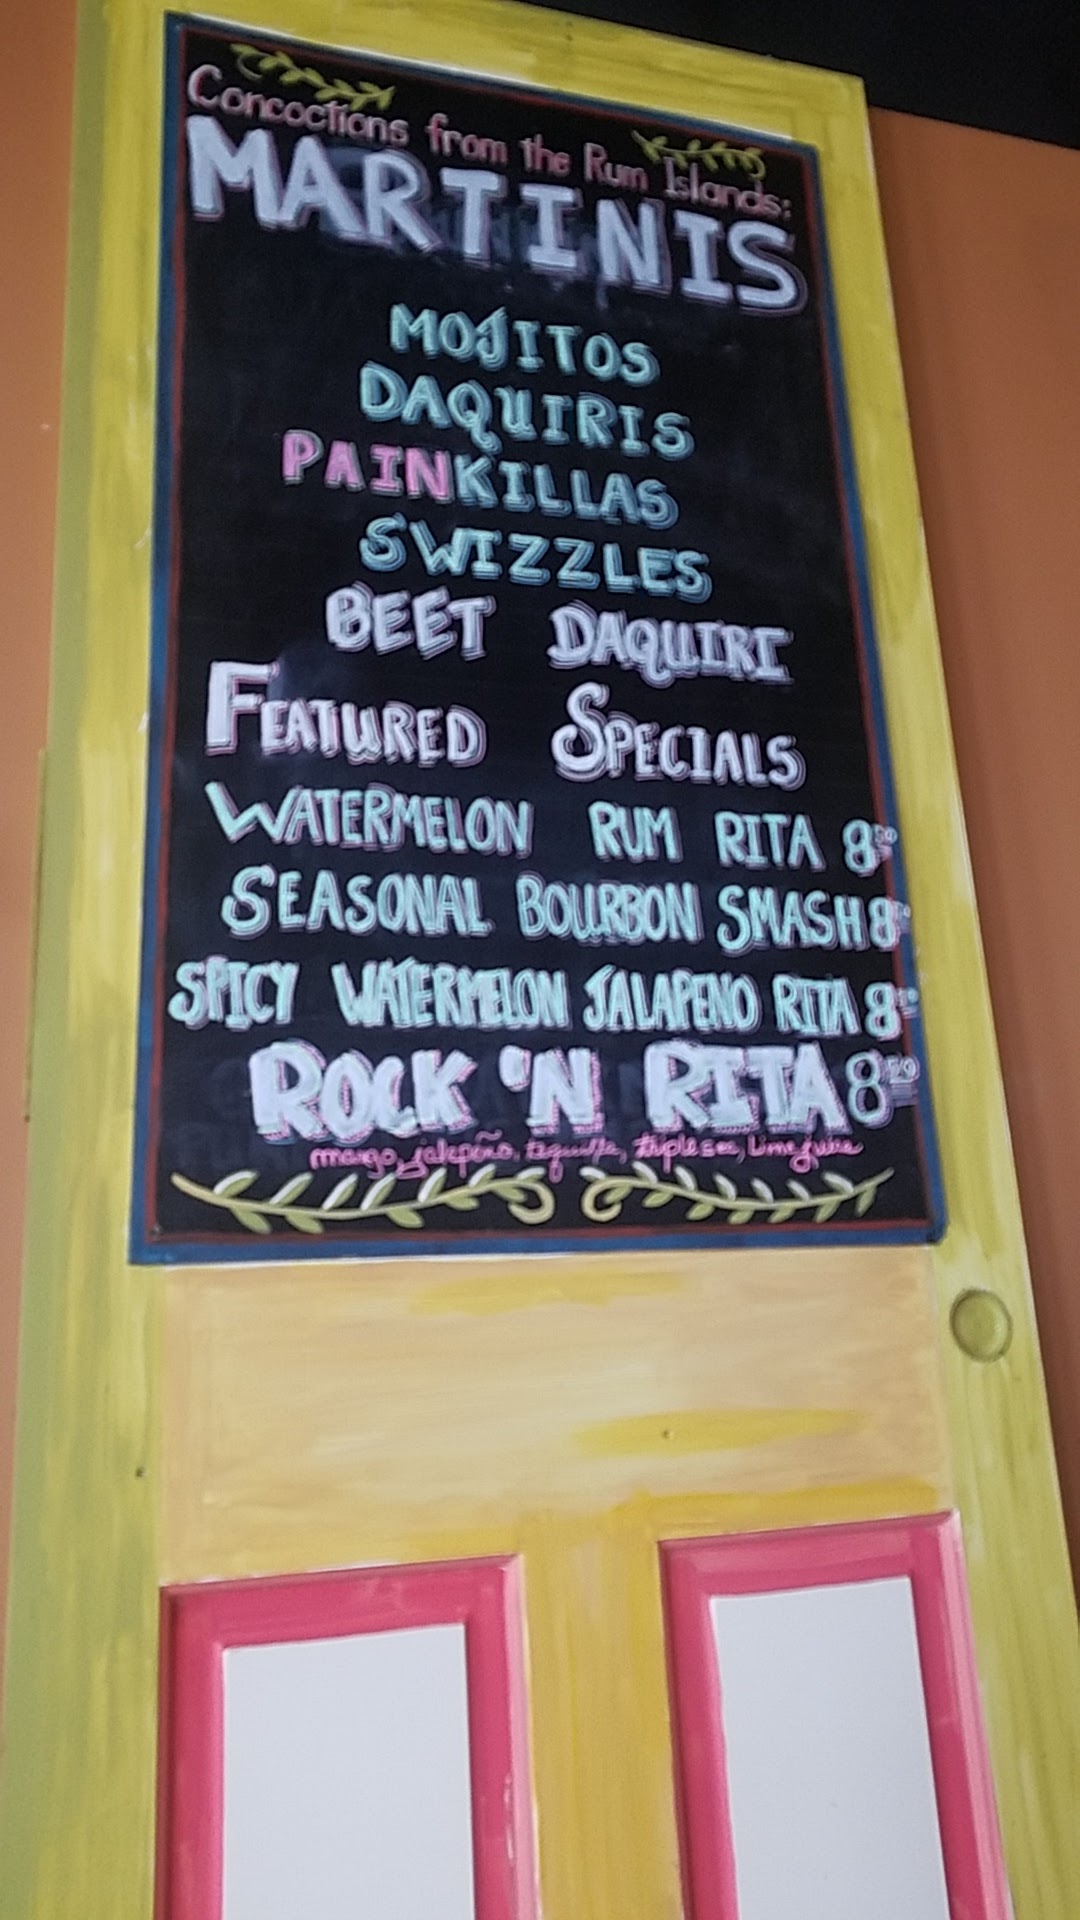 Concoctions from the Rum Islands:
MARTINIS
MOJITOS
DAQUIRIS
PAINKILLAS
SWIZZLES
BEET DAQUIRI
FEATURED SPECIALS
WATERMELON RUM RITA 8⁵⁰
SEASONAL BOURBON SMASH 8⁵⁰
SPICY WATERMELON JALAPENO RITA 8⁵⁰
ROCK 'N RITA 8⁵⁰
mango, jalepeño, tequila, triple sec, lime juice